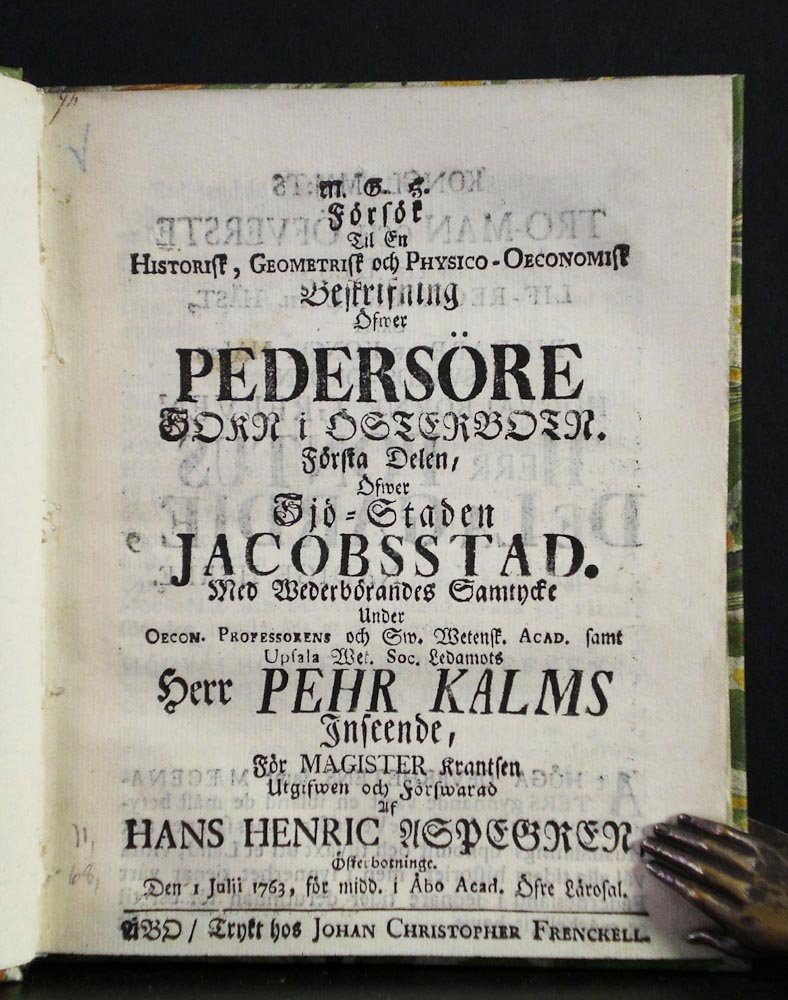 M. G. H.
Försök
Til En
Historisk, Geometrisk och Physico-Oeconomisk
Beskrifning
Öfwer
PEDERSÖRE
SOKN i ÖSTERBOTN.
Första Delen,
Öfwer
Sjö-Staden
JACOBSSTAD.
Med Wederbörandes Samtycke
Under
Oecon. Professorens och Sw. Wetensk. Acad. samt
Upsala Wet. Soc. Ledamots
Herr PEHR KALMS
Inseende,
För MAGISTER Krantsen
Utgifwen och Förswarad
Af
HANS HENRIC ASPEGREN,
Österbotninge.
Den 1 Julii 1763, för midd. i Åbo Acad. Öfre Lärosal.
ÅBO / Tryckt hos Johan Christopher Frenckell.